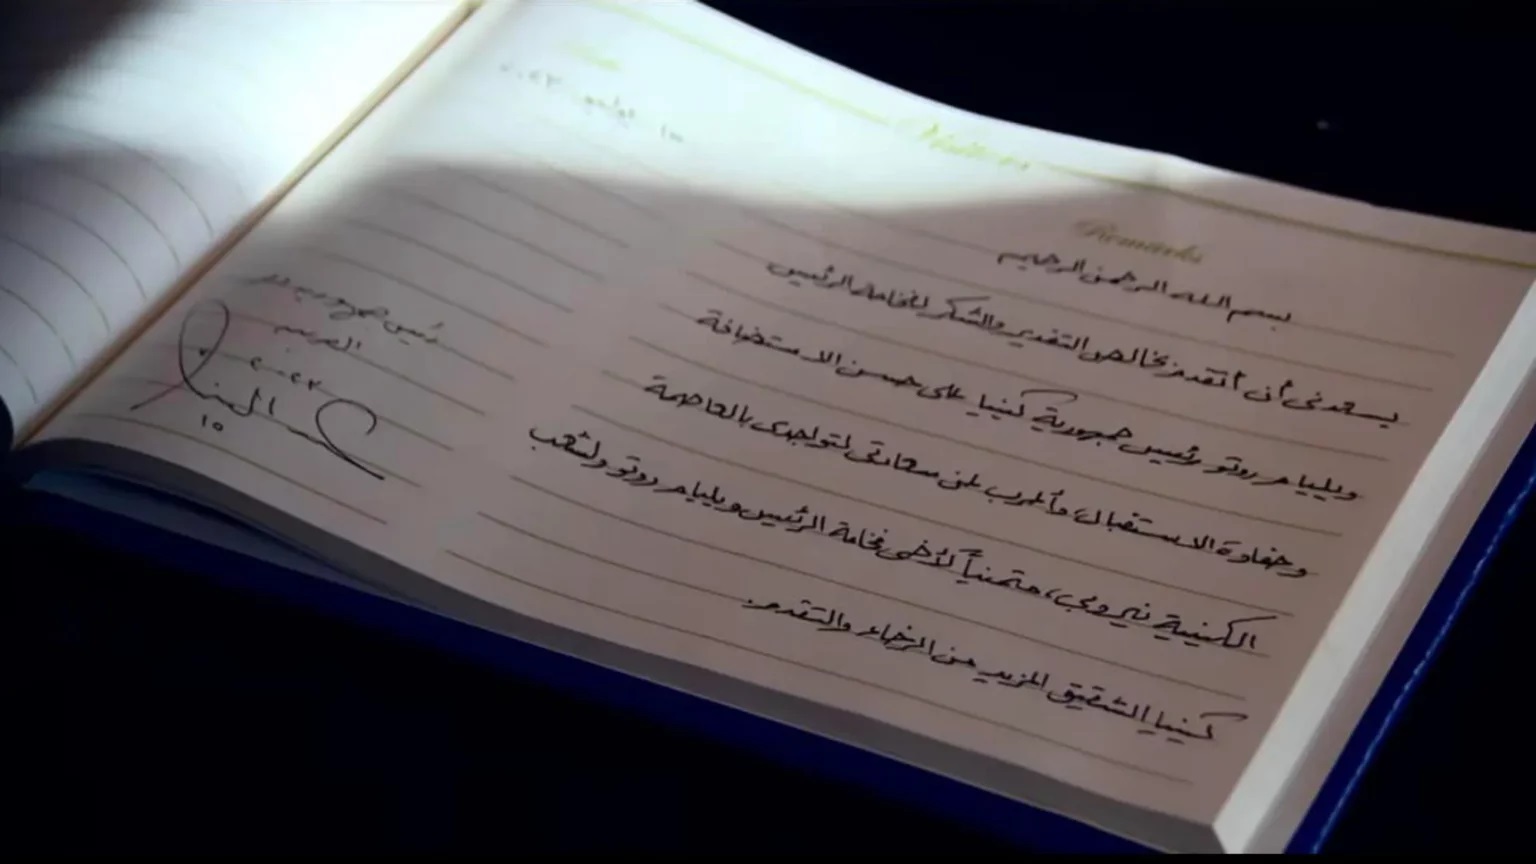 ١٥ يوليو ٢٠٢٣
Remarks
بسم الله الرحمن الرحيم
يسعدني أن أتقدم بخالص التقدير والشكر لفخامة الرئيس
ويليام روتو رئيس جمهورية كينيا على حسن الاستضافة
وحفاوة الاستقبال، وأعرب لكم عن سعادتي لتواجدي بالعاصمة
الكينية نيروبي، متمنياً لأخي فخامة الرئيس ويليام روتو ولشعب
كينيا الشقيق المزيد من الرخاء والتقدم.
رئيس جمهورية مصر
العربية